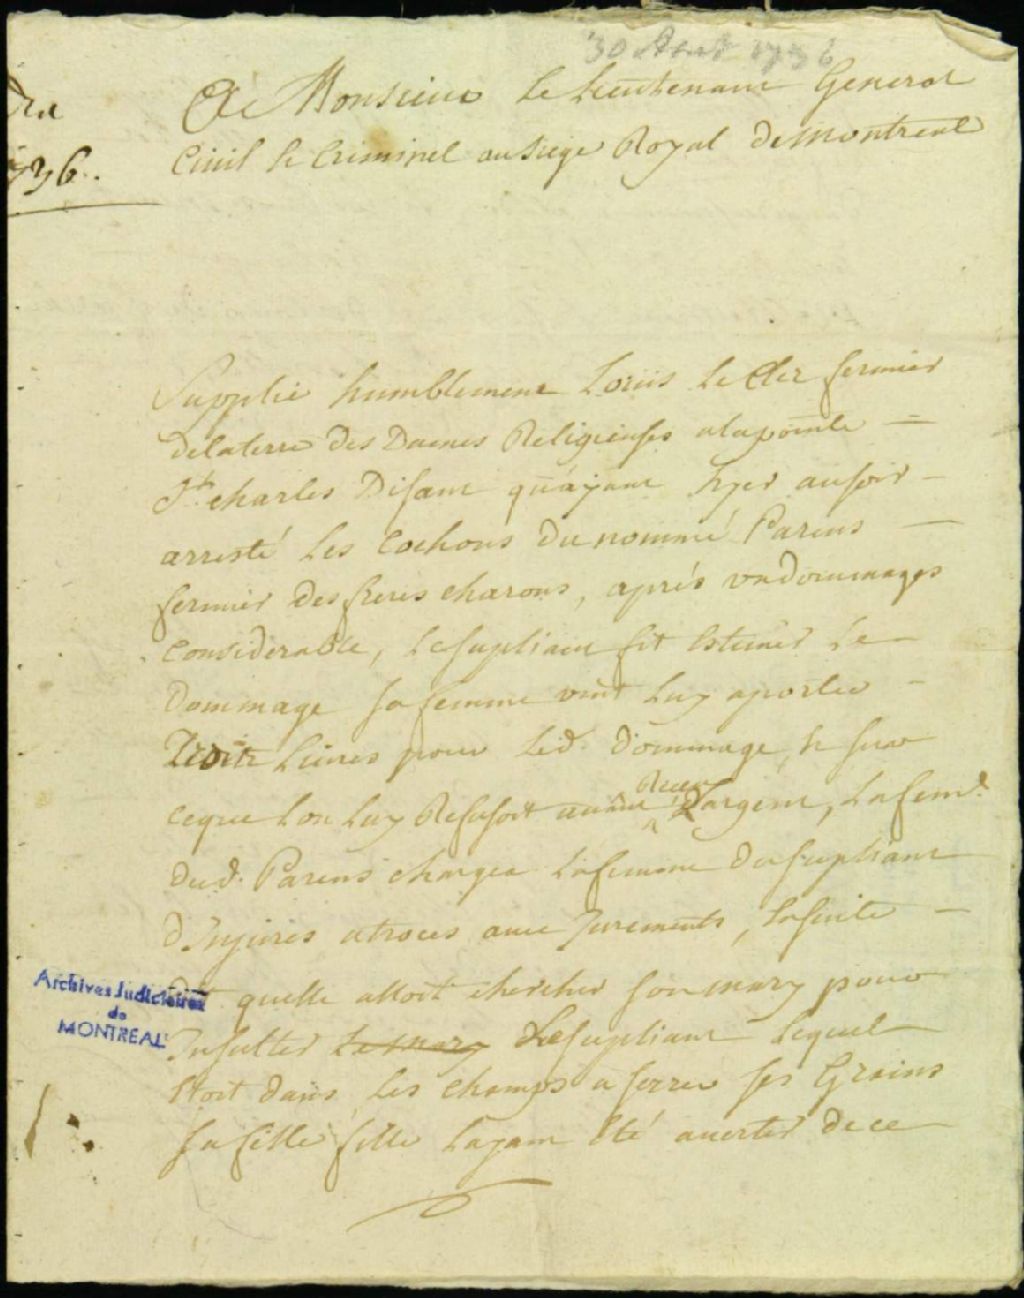 30 Aout 1736
A Monsieur le Lieutenant General
Civil le Criminel au siege Royal de Montreal
736.
Supplie humblement Louis le Cler fermier
delaterre des Dames Religieuses alapointe =
St. charles Disant qu'ayant hyer ausoir -
arresté les Cochons du nommé Parens -
fermier desfreres charons, aprés undommages
Considerable, lesupliant fit Estimer le -
Dommage sa femme vint luy aporter -
Trois livres pour led. dommage, & sur
ceque lon luy Refusoit Recu Largent, lafeme.
dud. Parens chargea lafemme dusupliant
d'Injures atroces avec Jurements, Ensuite -
dit quelle alloit chercher sonmary pour
Insulter Lemary Lesupliant lequel
Etoit dans les champs a serrer ses Grains
sa fille layant Eté avertir de ce -
Archives Judiciaires
de
MONTREAL